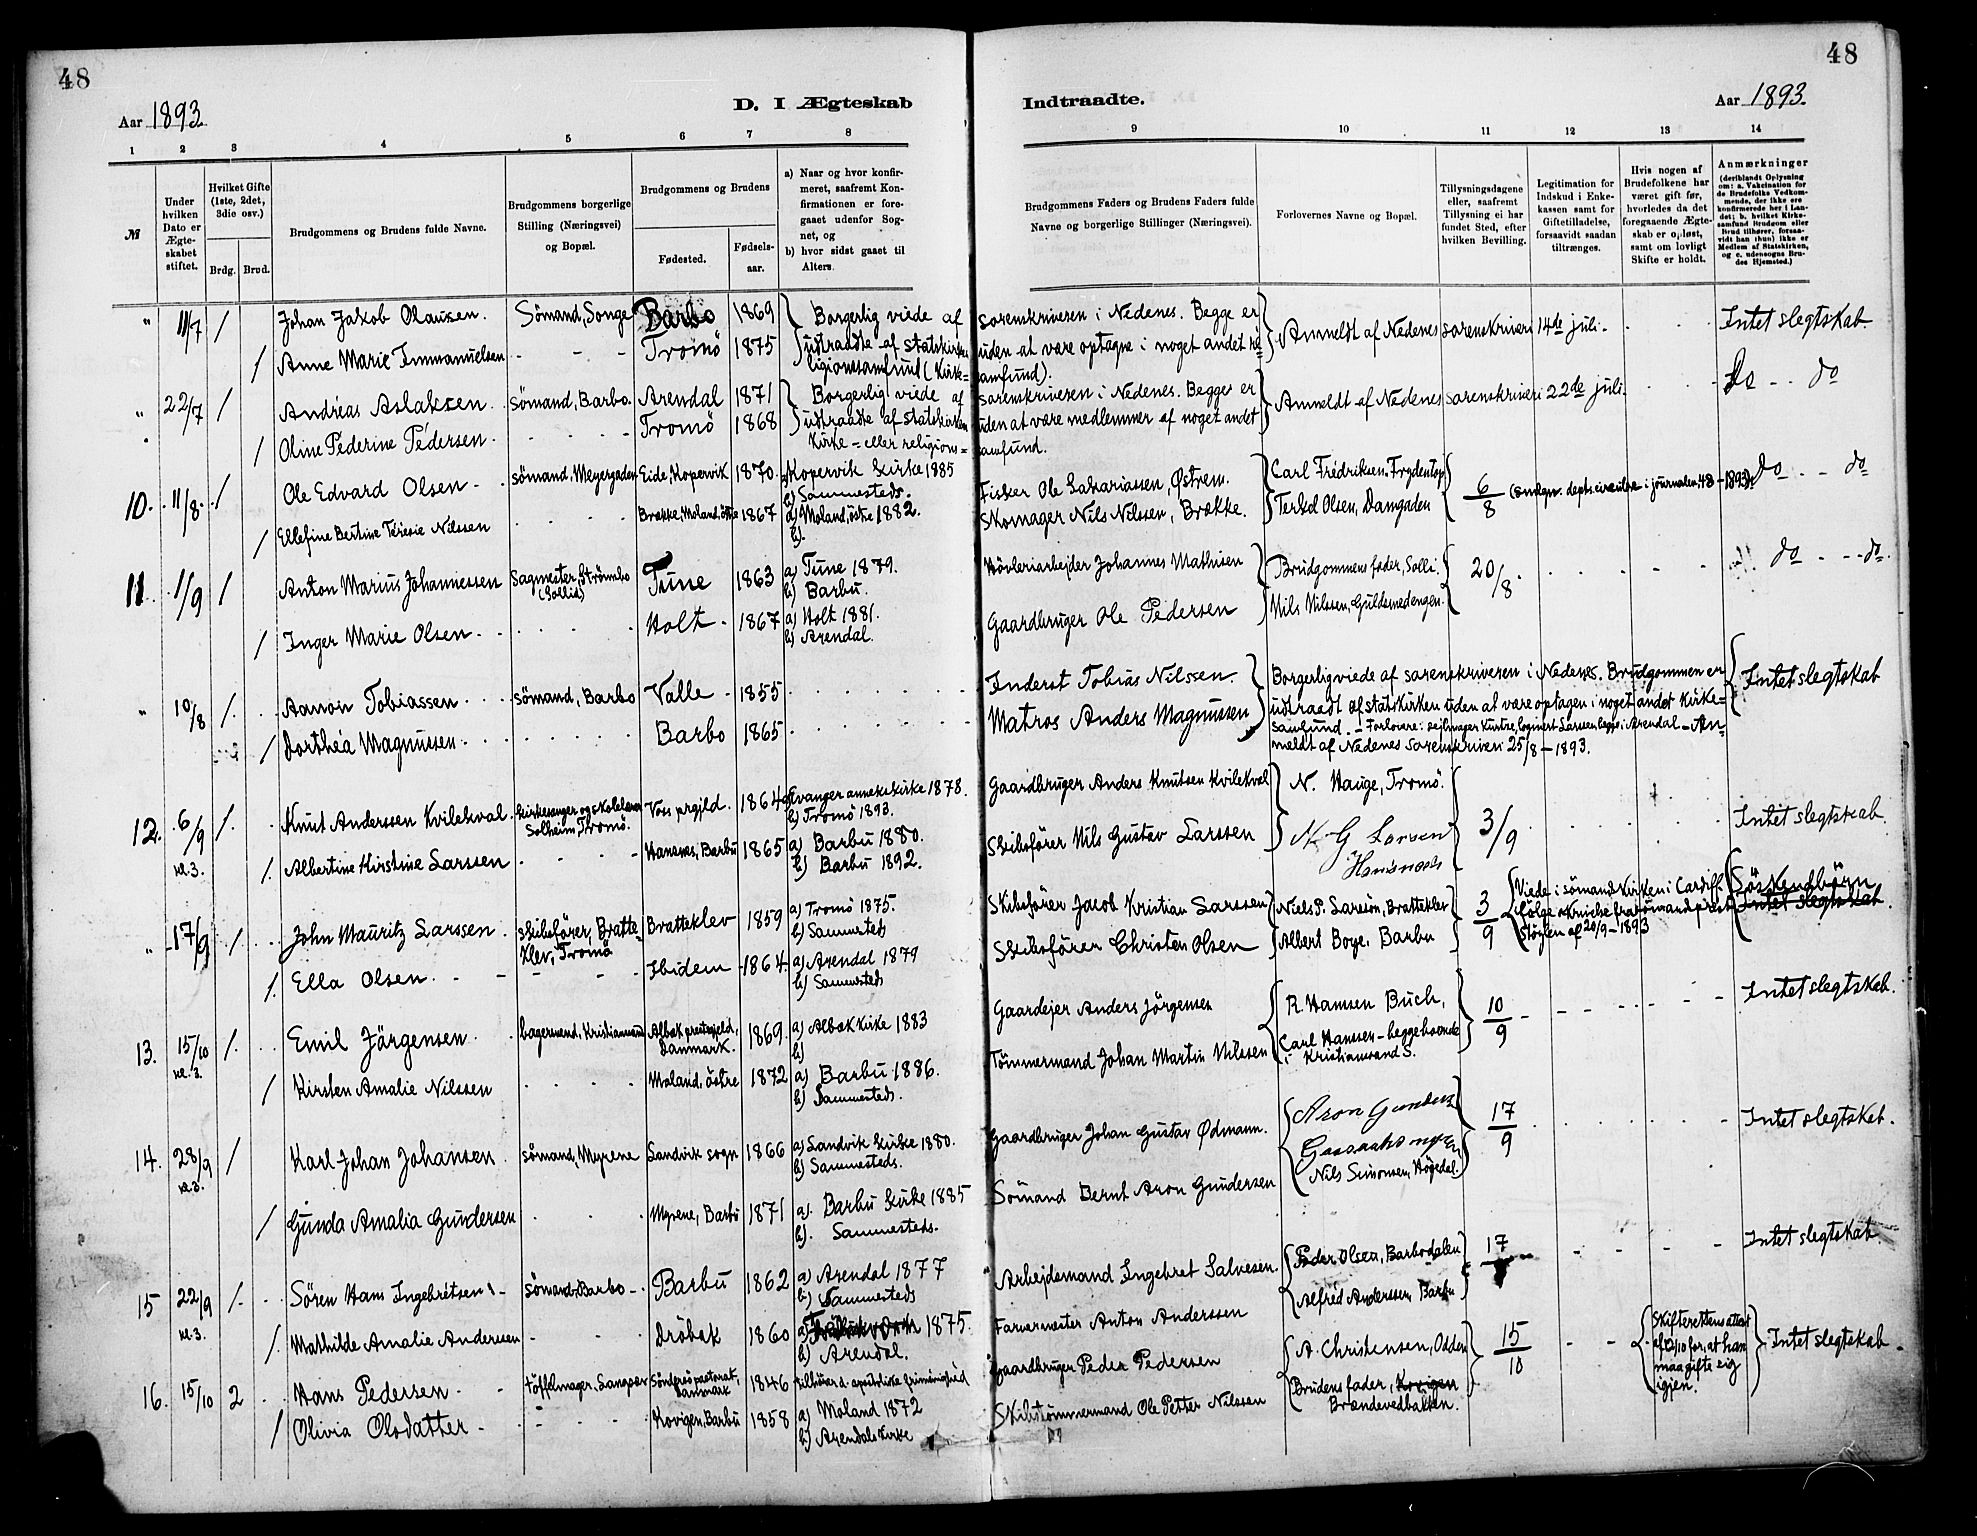 48
48
Aar 1893.
D. I Ægteskab
Indtraadte.
Aar 1893.
1 2 3 4 5 6 7 8
9 10 11 12 13 14
№
Under hvilken Dato er Ægteskabet stiftet.
Hvilket Gifte (1ste, 2det, 3die osv.)
Brdg. Brud.
Brudgommens og Brudens fulde Navne.
Brudgommens borgerlige Stilling (Næringsvei) og Bopæl.
Brudgommens og Brudens
Fødested.
Fødselsaar.
a) Naar og hvor konfirmeret, saafremt Konfirmationen er foregaaet udenfor Sognet, og
b) hvor sidst gaaet til Alters.
Brudgommens Faders og Brudens Faders fulde Navne og borgerlige Stillinger (Næringsvei).
Forlovernes Navne og Bopæl.
Tillysningsdagene eller, saafremt Tillysning ei har fundet Sted, efter hvilken Bevilling.
Legitimation for Indskud i Enkekassen samt for Giftetilladelse, forsaavidt saadan tiltrænges.
Hvis nogen af Brudefolkene har været gift før, hvorledes da det foregaaende Ægteskab er opløst, samt om lovligt Skifte er holdt.
Anmærkninger (deriblandt Oplysning om: a. Vakcination for de Brudefolks Vedkommende, der ikke ere konfirmerede her i Landet; b. hvilket Kirkesamfund Brudgom eller Brud tilhører, forsaavidt han (hun) ikke er Medlem af Statskirken, og c. udensogns Brudes Hjemsted.)
" 11/7 / Johan Jakob Olausen. Sömand, Songe Barbo 1869 Borgerlig viede af sorenskriveren i Nedenes. Begge er Anmeldt af Nedenes sorenskriveri 14de juli. Intet slegtskab.
/ Anne Marie Emmanuelsen - - - Tromö 1875 udtraadte af statskirken uden at være optagne i noget andet re-
ligionssamfund (Kirke= samfund).
" 22/7 / Andreas Aslaksen. Sömand, Barbo. Arendal 1871 Borgerlig viede af sorenskriveren i Nedenes. Begge er Anmeldt af Nedenes sorenskriveri 22de juli. do - - do
/ Oline Pederine Pedersen. Tromö 1868 udtraadte af statskirken uden at være medlemmer af noget andet
Kirke= eller religions= samfund.
10. 11/8. / Ole Edvard Olsen. sömand, Meyergaden Eide, Kopervik 1870. a) Kopervik kirke 1885
b) Sammesteds. Fisker Ole Sakariassen, Østrem. Carl Fredriksen Frydentop 6/8 do - - do
/ Ellefine Bertine Teresie Nilssen Brække, Moland, östre 1867 a) Moland, östre 1882.
b). Skomager Nils Nilssen, Brække. Terkel Olsen, Damgaden
11. 1/9 / Anton Marius Johannessen Sagmester, Strömbo (Sollid) Tune 1863 a) Tune 1879.
b) Barbu. Hövleriarbejder Johannes Mathisen Brudgommens fader, Solli. 20/8. do - - do.
/ Inger Marie Olsen. Holt 1867 a) Holt 1881.
b) Arendal. Gaardbruger Ole Pedersen Nils Nilssen, Guldsmedengen.
" 10/8 /. Aanon Tobiassen sömand, Barbo Valle 1855 Inderst Tobias Nilssen. Borgerlig viede af sorenskriveren i Nedenes. Brudgommen er Intet slegtskab
/ Dorthea Magnussen Barbo 1865 Matros Anders Magnussen udtraadt af statskirken uden at være optagen i noget andet Kirke=
samfund. - Forlovere: sejlmager Kuntze, logiert Larssen begge i Arendal - An-
meldt af Nedenes sorenskriveri 25/8 - 1893.
12. 6/9 kl. 3. /. Knut Anderssen Kvilekval. Kirkesanger og skolelærer Solheim, Tromö. Voss prgjld. 1864 a) Evanger annekskirke 1878.
b) Tromö 1893. Gaardbruger Anders Knutsen Kvilekval N. Hauge, Tromö. 3/9 Intet slegtskab
/. Albertine Kirstine Larssen Hansnes, Barbu 1865 a) Barbu 1880.
b) Barbu 1892. Skibsförer Nils Gustav Larssen N. G Larsen
" 17/9 / John Mauritz Larssen. skibsförer, Bratteklev, Tromö Bratteklev 1859 a) Tromö 1875.
b) Sammesteds Skibsförer Jacob Kristian Larssen Niels P. Larsen, Bratteklev 3/9 Viede i sömandskirken i Cardiff
ifölge skrivelse fra sömandsprest
Stöylen af 20/9 - 1893 Söskendbörn
Intet slegtskab.
/. Ella Olsen. Ibidem 1864. a) Arendal 1879
b) Sammesteds Skibsförer Christen Olsen Albert Boye, Barbu
13. 15/10 kl. 3. /. Emil Jörgensen bagersvend, Kristianssand Albæk prestegjeld, Danmark. 1869. a) Albæk Kirke 1883
b) Gaardejer Anders Jörgensen R. Hansen Buch, 10/9 Intet slegtskab.
/ Kirsten Amalie Nilssen Moland, östre 1872 a) Barbu 1886.
b) Sammesteds. Tömmermand Johan Martin Nilssen Carl Hanssen - begge boende
i Kristianssand S.
14. 28/9 kl. 3. / Karl Johan Johansen. sömand, Myrene Sandvik sogn 1866 a) Sandvik Kirke 1880.
b) Sammesteds. Gaardbruger Johan Gustav Ødmann. Aron Gunders 17/9 Intet slegtskab.
Nils Simonsen, Högedal.
/ Gunda Amalia Gundersen Myrene, Barbu 1871 a). Barbu Kirke 1885
b). Sammesteds. Sömand Bernt Aron Gundersen
15 22/9 kl. 3. /. Sören Hans Ingebretsen sömand, Barbo Barbu 1862 a) Arendal 1877
b) Sammesteds Arbejdsmand Ingebret Salvesen. Peder Olsen, Barbodalen 17 Intet slegtskab.
/. Mathilde Amalie Anderssen Dröbak 1860 a) 1875.
b) Arendal. Farvermester Anton Anderssen Alfred Anderssen, Barbu
16. 15/10 2 Hans Pedersen töffelmager, Danmark 1846 Gaardbruger Peder Pedersen A. Christensen, Odden 15/10 Skifterettens attest
af 12/10 for, at han
maa gifte sig
igjen. Intet slegtskab.
/ Olivia Olsdatter Kovigen, Barbu 1858 a) Moland 1872
b) Arendals Kirke Skibstömmermand Ole Petter Nilssen Brudens fader, Kovigen
Brændevedbakken.